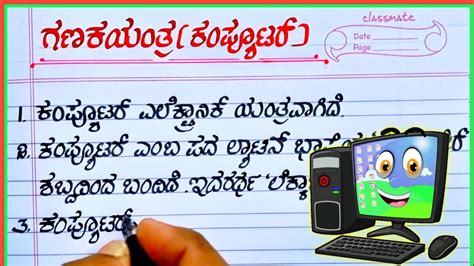 classmate
Date
Page
ಗಣಕಯಂತ್ರ(ಕಂಪ್ಯೂಟರ್)
1. ಕಂಪ್ಯೂಟರ್ ಎಲೆಕ್ಟ್ರಾನಿಕ್ ಯಂತ್ರವಾಗಿದೆ.
2. ಕಂಪ್ಯೂಟರ್ ಎಂಬ ಪದ ಲ್ಯಾಟಿನ್
ಶಬ್ದದಿಂದ ಬಂದಿದೆ. ಇದರರ್ಥ
3. ಕಂಪ್ಯೂಟರ್